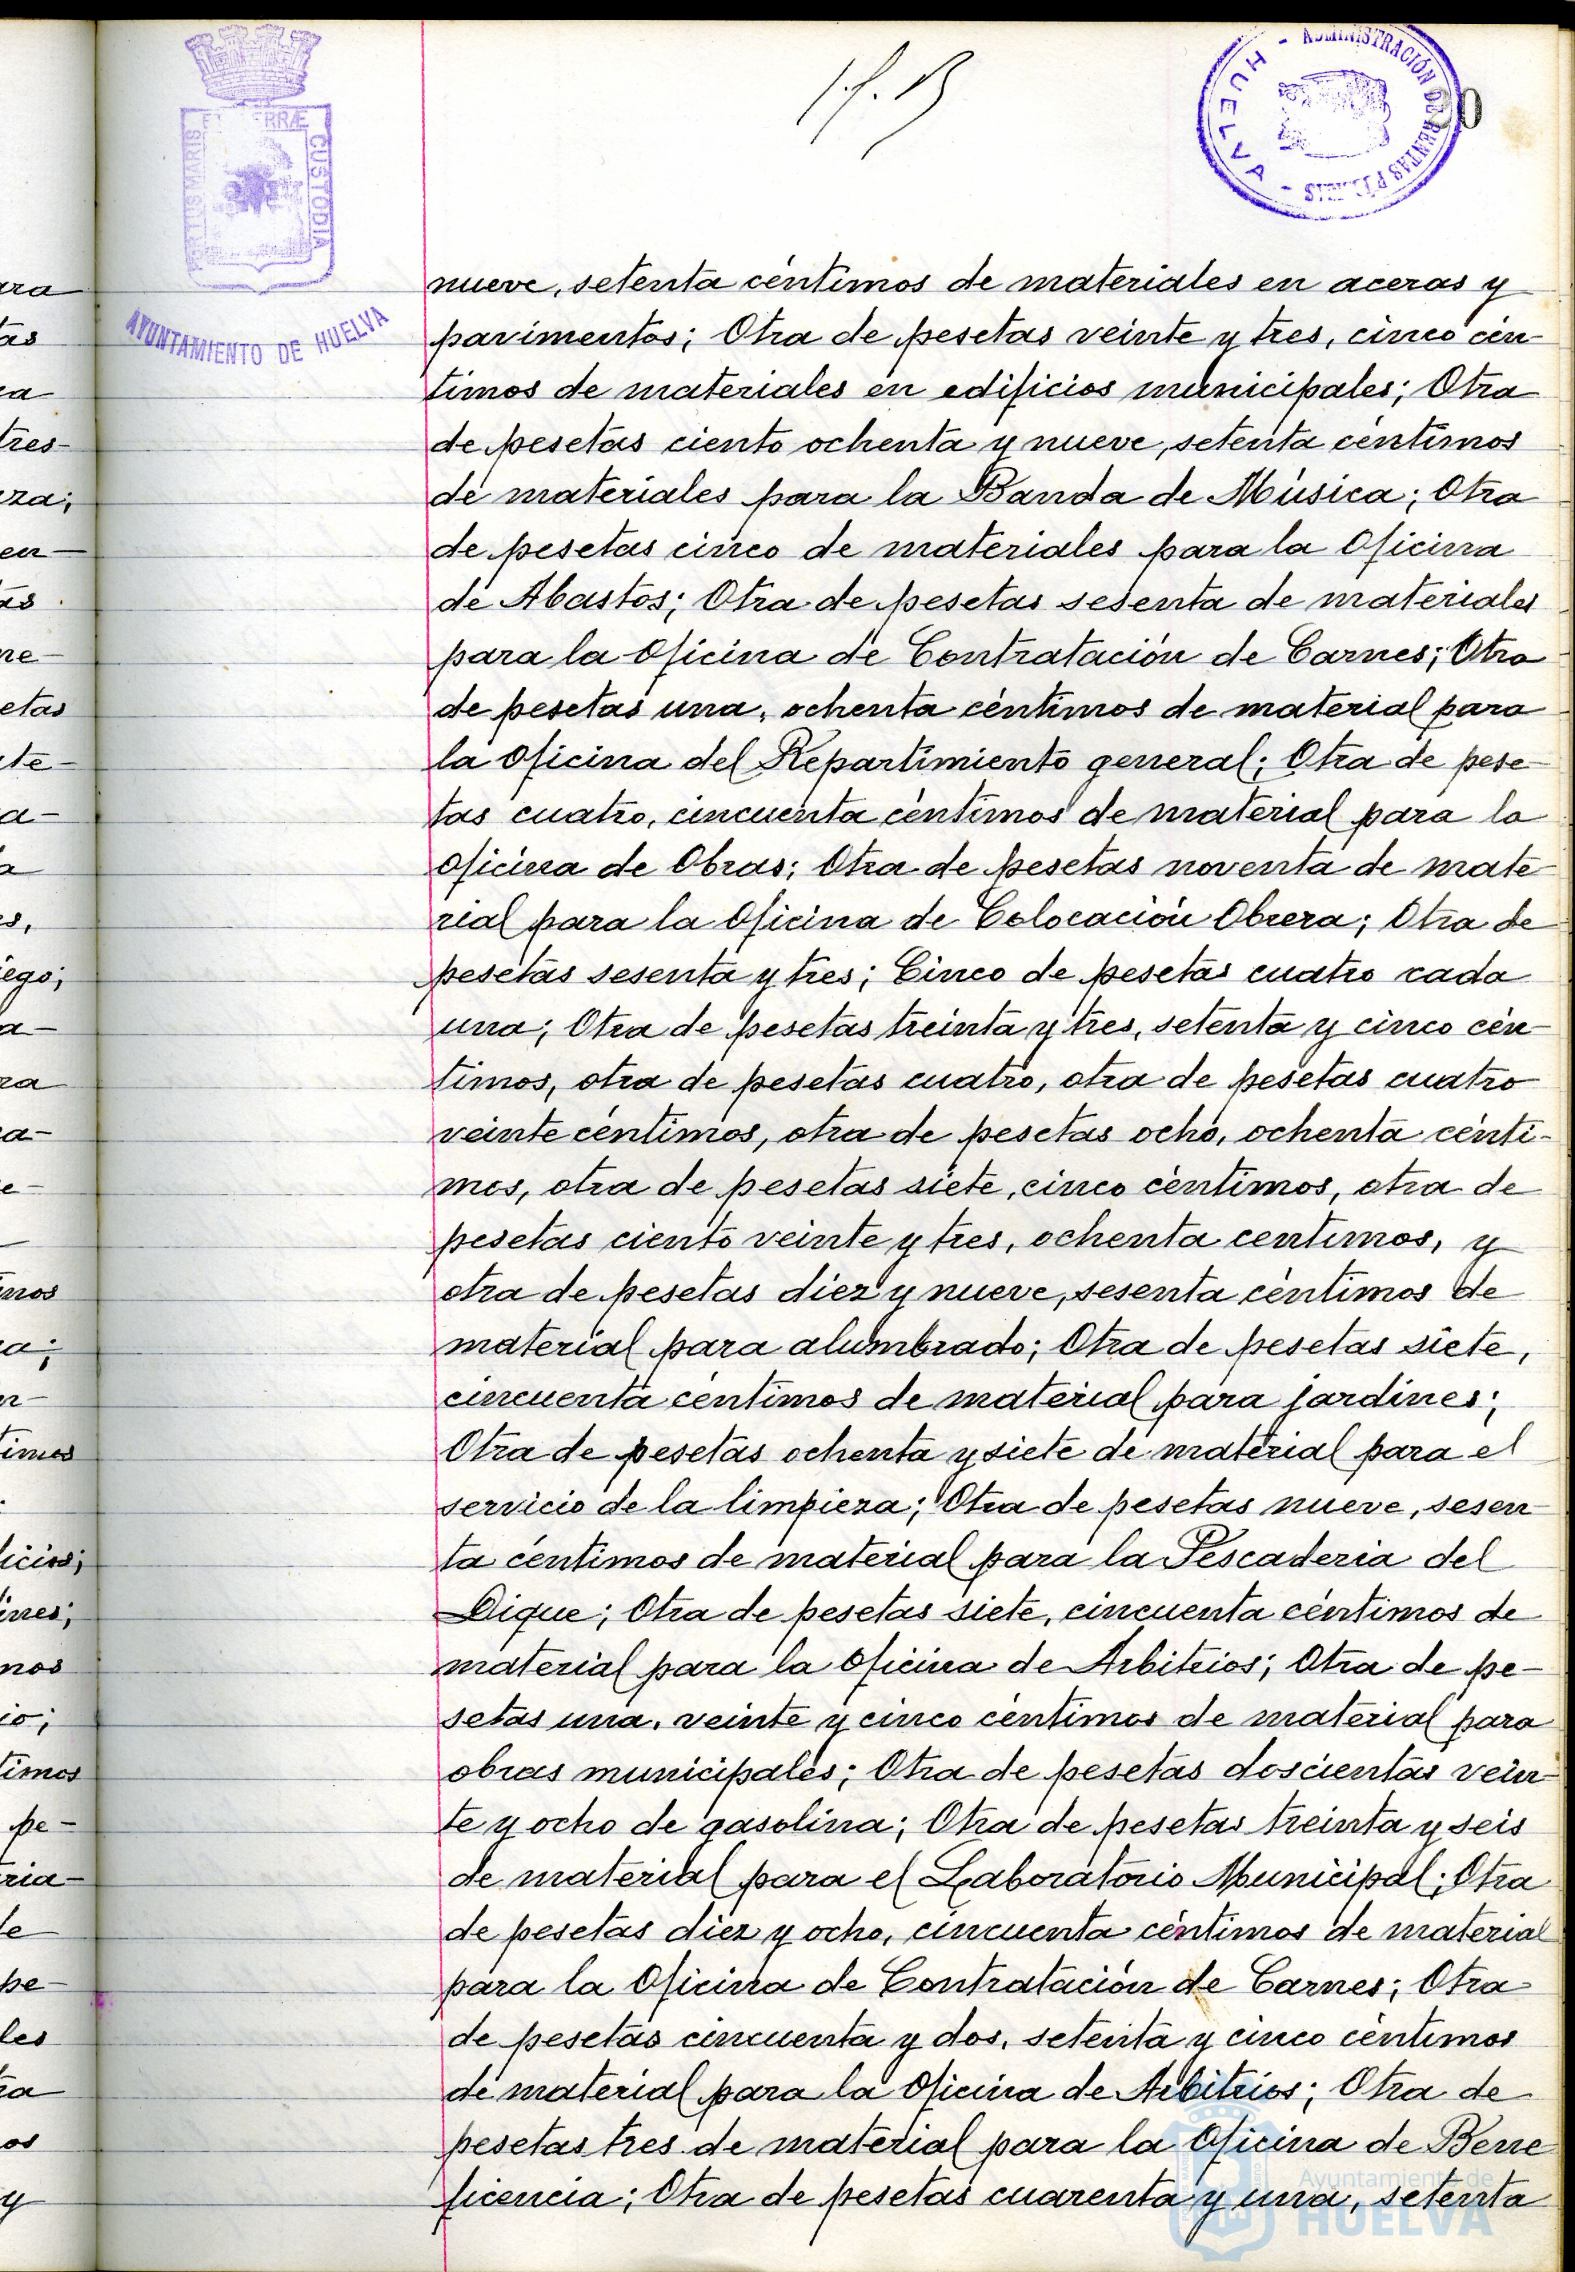 PORTUS MARIS ET TERRÆ CUSTODIA
AYUNTAMIENTO DE HUELVA
ADMINISTRACIÓN DE RENTAS
HUELVA
nueve, setenta céntimos de materiales en aceras y
pavimentos; Otra de pesetas veinte y tres, cinco cén-
timos de materiales en edificios municipales; Otra
de pesetas ciento ochenta y nueve, setenta céntimos
de materiales para la Banda de Música; Otra
de pesetas cinco de materiales para la Oficina
de Abastos; Otra de pesetas sesenta de materiales
para la Oficina de Contratación de Carnes; Otra
de pesetas una, ochenta céntimos de material para
la Oficina del Repartimiento general; Otra de pese-
tas cuatro, cincuenta céntimos de material para la
Oficina de Obras; Otra de pesetas noventa de mate-
rial para la Oficina de Colocación Obrera; Otra de
pesetas sesenta y tres; Cinco de pesetas cuatro cada
una; Otra de pesetas treinta y tres, setenta y cinco cén-
timos, otra de pesetas cuatro, otra de pesetas cuatro
veinte céntimos, otra de pesetas ocho, ochenta cénti-
mos, otra de pesetas siete, cinco céntimos, otra de
pesetas ciento veinte y tres, ochenta centimos, y
otra de pesetas diez y nueve, sesenta céntimos de
material para alumbrado; Otra de pesetas siete,
cincuenta centimos de material para jardines;
Otra de pesetas ochenta y siete de material para el
servicio de la limpieza; Otra de pesetas nueve, sesen-
ta céntimos de material para la Pescaderia del
Dique; Otra de pesetas siete, cincuenta céntimos de
material para la Oficina de Arbitrios; Otra de pe-
setas una, veinte y cinco céntimos de material para
obras municipales; Otra de pesetas doscientas vein-
te y ocho de gasolina; Otra de pesetas treinta y seis
de material para el Laboratorio Municipal; Otra
de pesetas diez y ocho, cincuenta céntimos de material
para la Oficina de Contratación de Carnes; Otra
de pesetas cincuenta y dos, setenta y cinco céntimos
de material para la Oficina de Arbitrios; Otra de
pesetas tres de material para la Oficina de Bene
ficencia; Otra de pesetas cuarenta y una, setenta
Ayuntamiento de
HUELVA